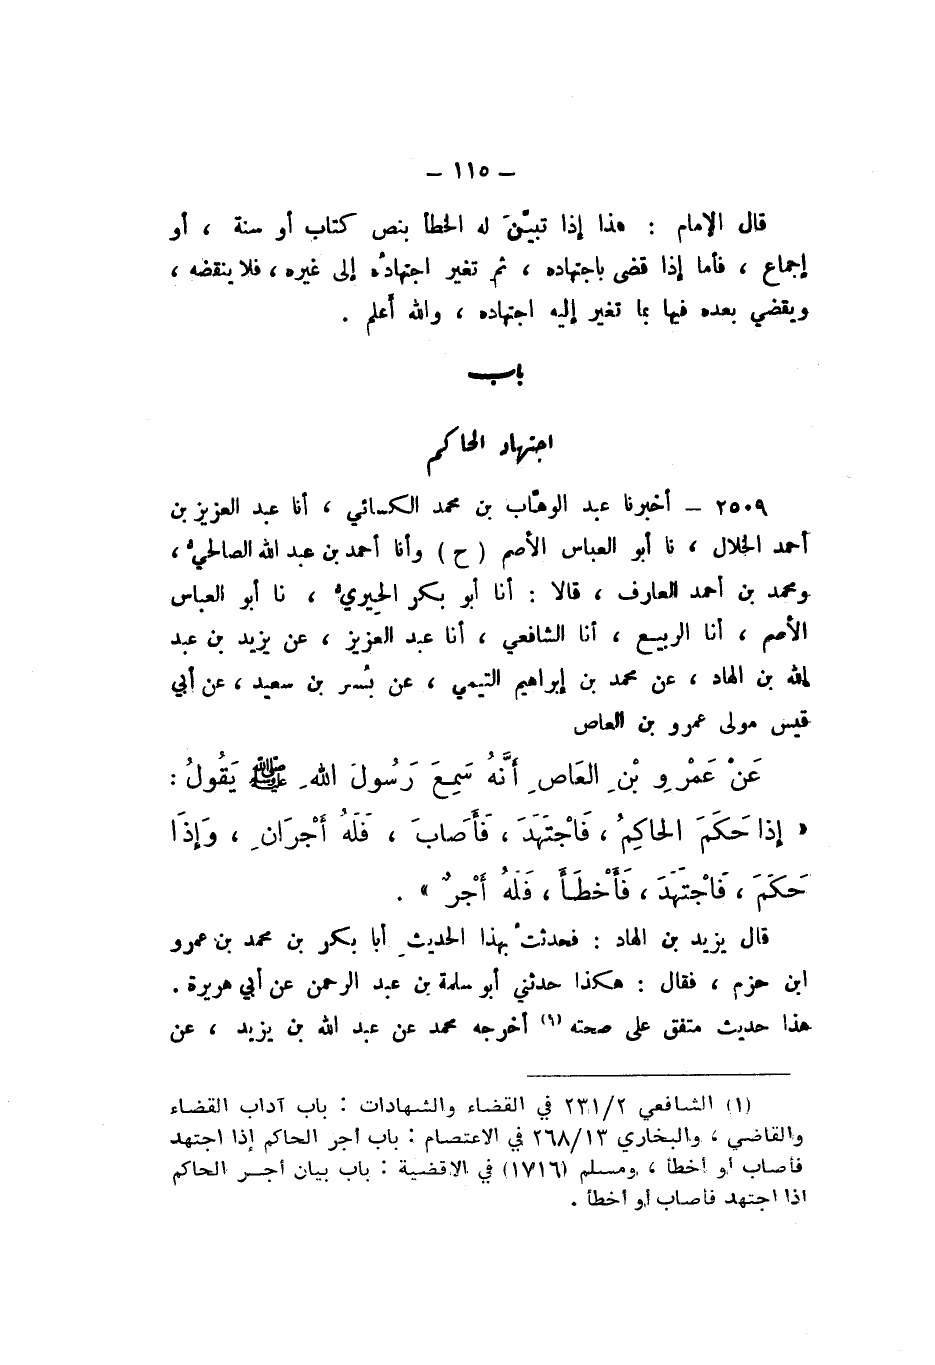 – ١١٥ –
قال الإمام : هذا إذا تبيَّنَ له الخطأ بنص كتاب أو سنة ، أو
إجماع ، فأما إذا قضى باجتهاده ، ثم تغير اجتهادُه إلى غيره ، فلا ينقضه ،
ويقضي بعده فيها بما تغير إليه اجتهاده ، والله أعلم .
باب
اجتهاد الحاكم
٢٥٠٩ – أخبرنا عبد الوهَّاب بن محمد الكسائي ، أنا عبد العزيز بن
أحمد الخلال ، نا أبو العباس الأصم ( ح ) وأنا أحمد بن عبد الله الصالحيُّ ،
ومحمد بن أحمد العارف ، قالا : أنا أبو بكر الحِيريُّ ، نا أبو العباس
الأصم ، أنا الربيع ، أنا الشافعي ، أنا عبد العزيز ، عن يزيد بن عبد
الله بن الهاد ، عن محمد بن إبراهيم التيمي ، عن بُسر بن سعيد ، عن أبي
قيس مولى عمرو بن العاص
عَنْ عَمْرِو بْنِ العَاصِ أَنَّهُ سَمِعَ رَسُولَ اللهِ ﷺ يَقُولُ :
« إِذا حَكَمَ الحاكِمُ ، فَاجْتَهَدَ ، فَأَصابَ ، فَلَهُ أَجْرَانِ ، وَإِذَا
حَكَمَ ، فَاجْتَهَدَ ، فَأَخْطَأَ ، فَلَهُ أَجْرٌ » .
قال يزيد بن الهاد : فحدثتُ بهذا الحديثِ أبا بكر بن محمد بن عمرو
ابن حزم ، فقال : هكذا حدثني أبو سلمة بن عبد الرحمن عن أبي هريرة .
هذا حديث متفق على صحته (١) أخرجه محمد عن عبد الله بن يزيد ، عن
(١) الشافعي ٢٣١/٢ في القضاء والشهادات : باب آداب القضاء
والقاضي ، والبخاري ٢٦٨/١٣ في الاعتصام : باب أجر الحاكم إذا اجتهد
فأصاب أو أخطأ ، ومسلم (١٧١٦) في الاقضية : باب بيان أجر الحاكم
اذا اجتهد فأصاب أو أخطأ .